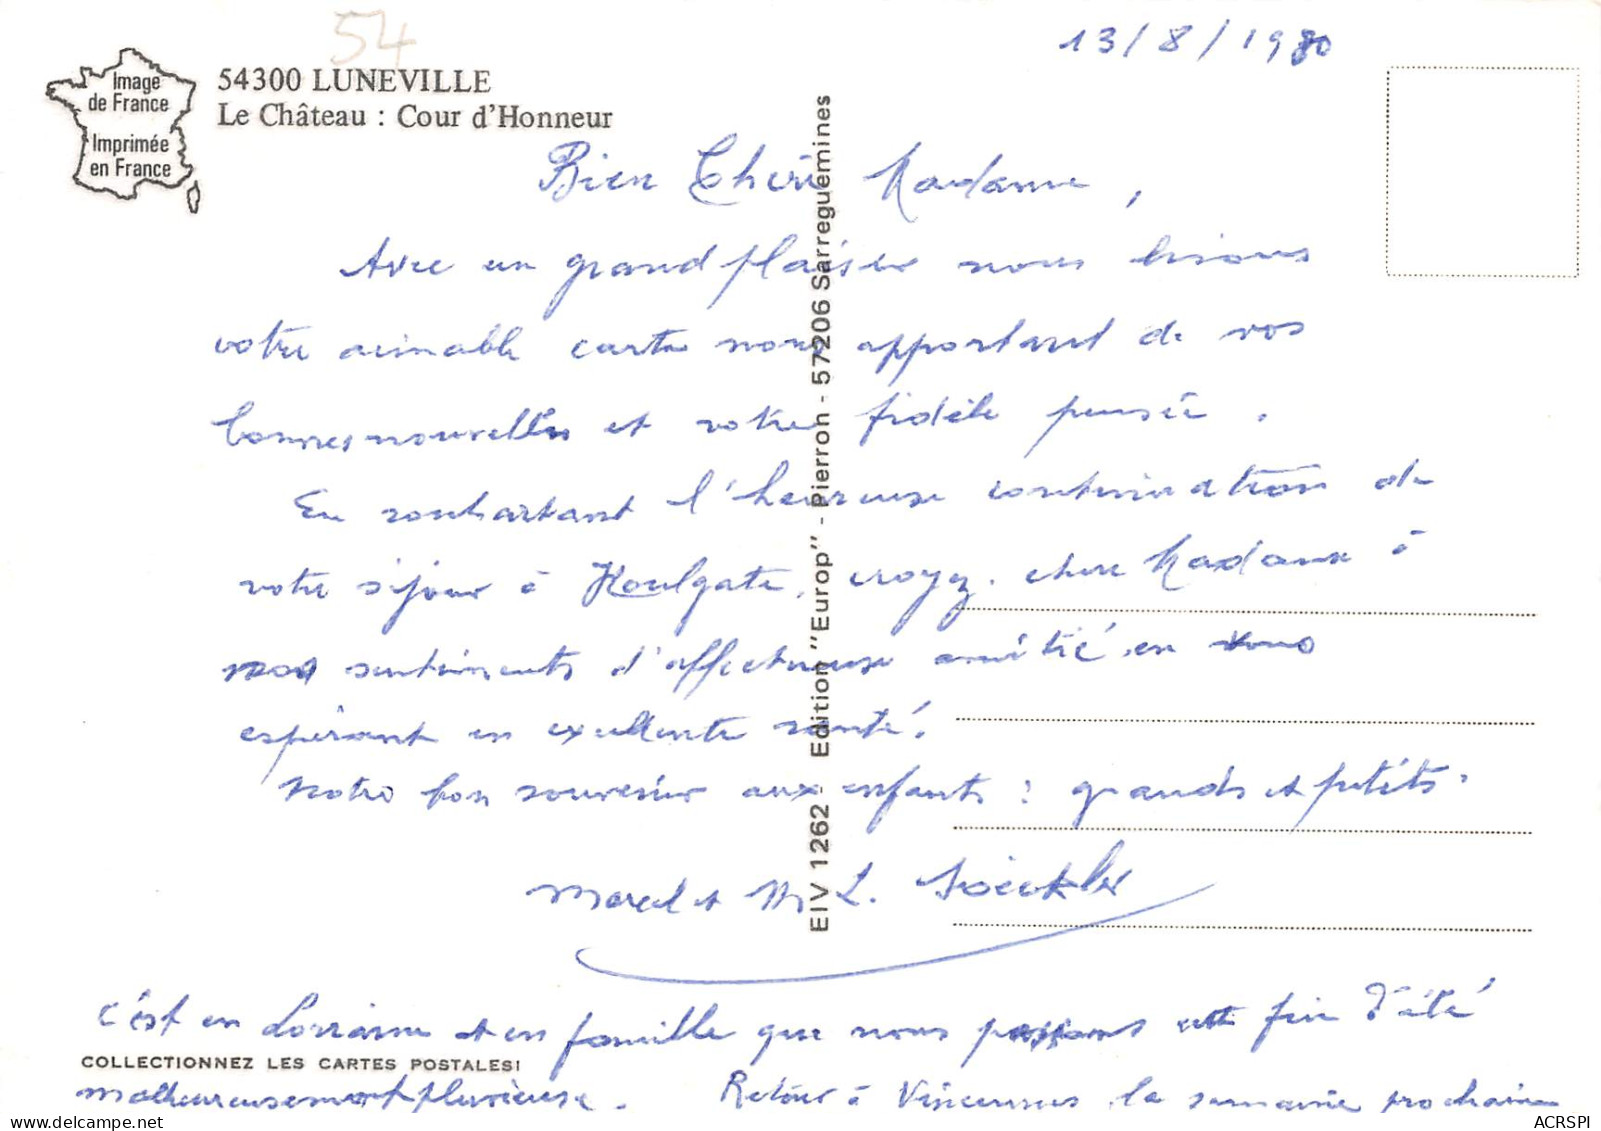 54
13/8/1980
Image
de France
Imprimée
en France
54300 LUNEVILLE
Le Château : Cour d'Honneur
Bien Chère Madame,
Avec un grand plaisir nous lisons
votre aimable carte nous apportant de vos
bonnes nouvelles et votre fidèle pensée.
En souhaitant l'heureuse continuation de
votre séjour à Houlgate, croyez, chère Madame à
nos sentiments d'affectueuse amitié en vous
espérant en excellente santé.
Notre bon souvenir aux enfants : grands et petits.
Marcel et M L.
c'est en Lorraine et en famille que nous passons cette fin d'été
COLLECTIONNEZ LES CARTES POSTALES!
malheureusement pluvieuse. Retour à Vincennes la semaine prochaine
EIV 1262 - Edition "Europ" - Pierron - 57206 Sarreguemines
ACRSPI